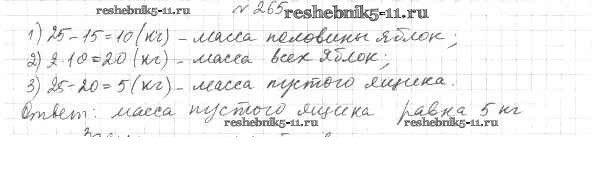 reshebnik5-11.ru № 265 reshebnik5-11.ru
1) 25-15=10 (кг) - масса половины яблок;
2) 2·10=20 (кг) - масса всех яблок;
3) 25-20=5 (кг) - масса пустого ящика.
Ответ: масса пустого ящика равна 5 кг
reshebnik5-11.ru reshebnik5-11.ru